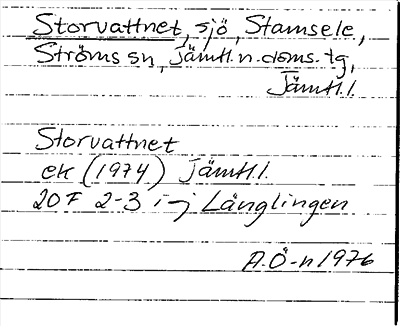 Storvattnet, sjö, Stamsele,
Ströms sn, Jämtl. n. doms. tg,
Jämtl. l.
Storvattnet
ek (1974) Jämtl. l.
20F 2-3 i-j Långlingen
A.Ö-n 1976